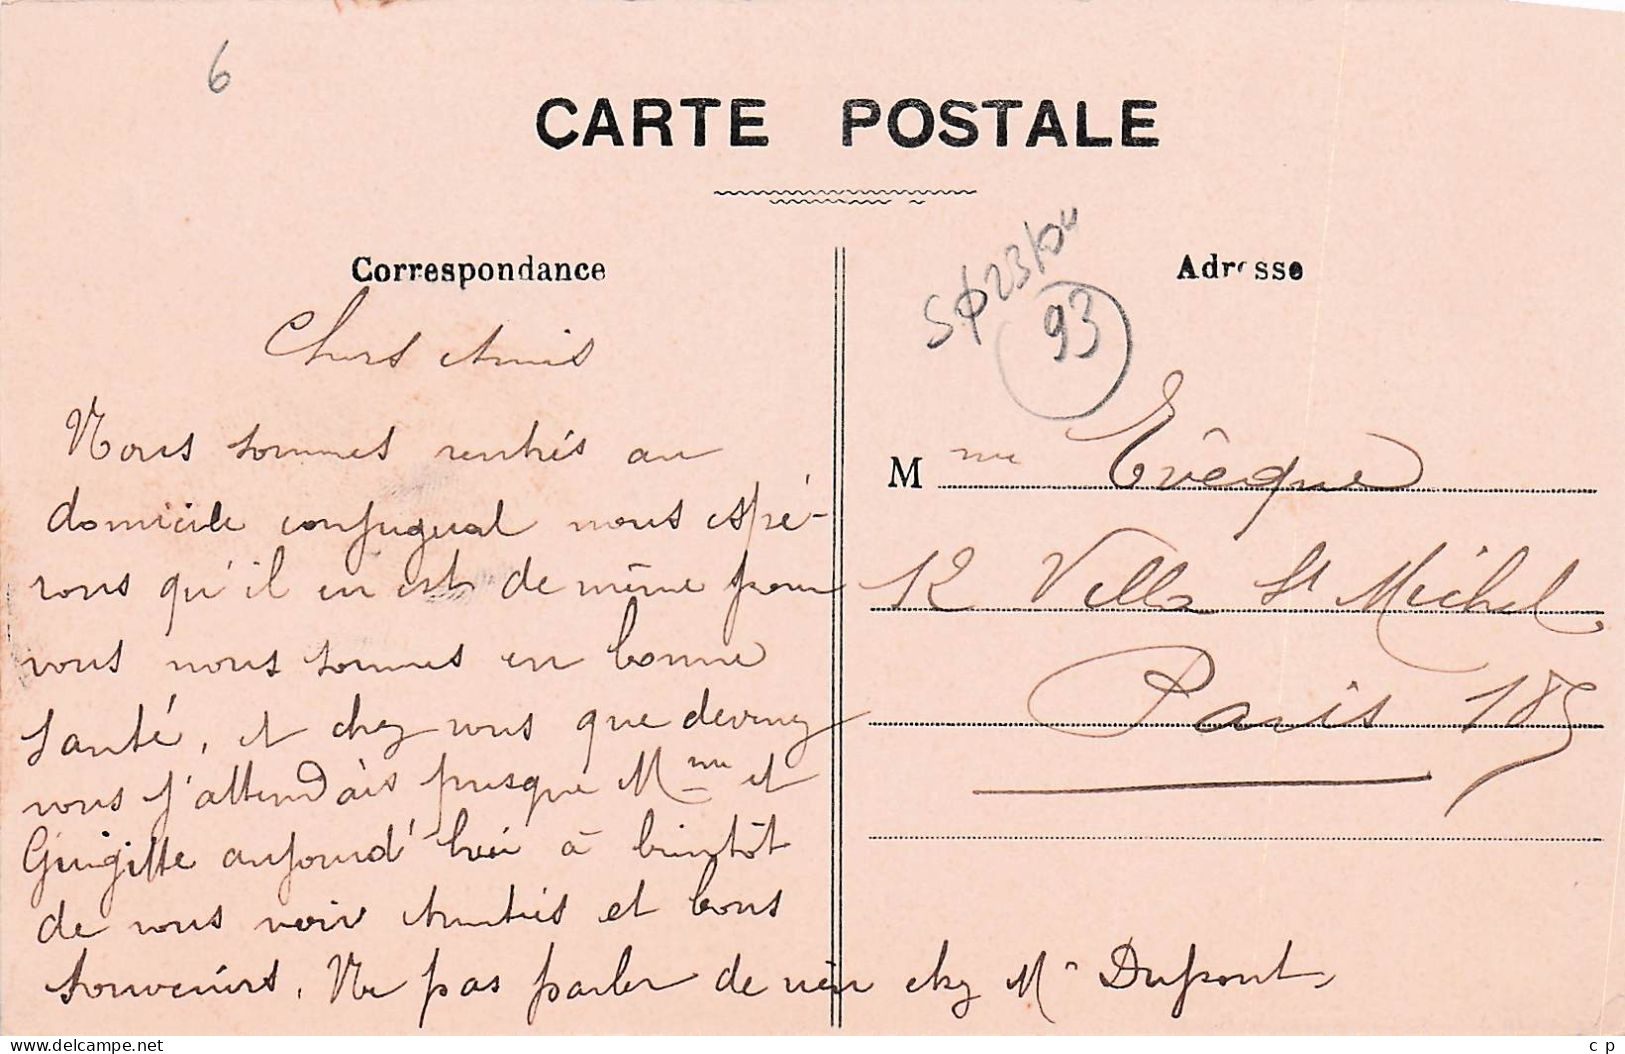 6
CARTE POSTALE
Correspondance
Chers Amis
Nous sommes rentrés au
domicile conjugual nous espé-
rons qu'il en est de même pour
vous nous sommes en bonne
santé, et chez vous que devenez
vous j'attendais presque Mme et
aujourd'hui à bientôt
de vous voir Amitiés et bons
souvenirs. Ne pas parler de rien chez Mr Dupont
93
Adresse
Mme Evêque
12 Villa St Michel
Paris 18e
www.delcampe.net
cp